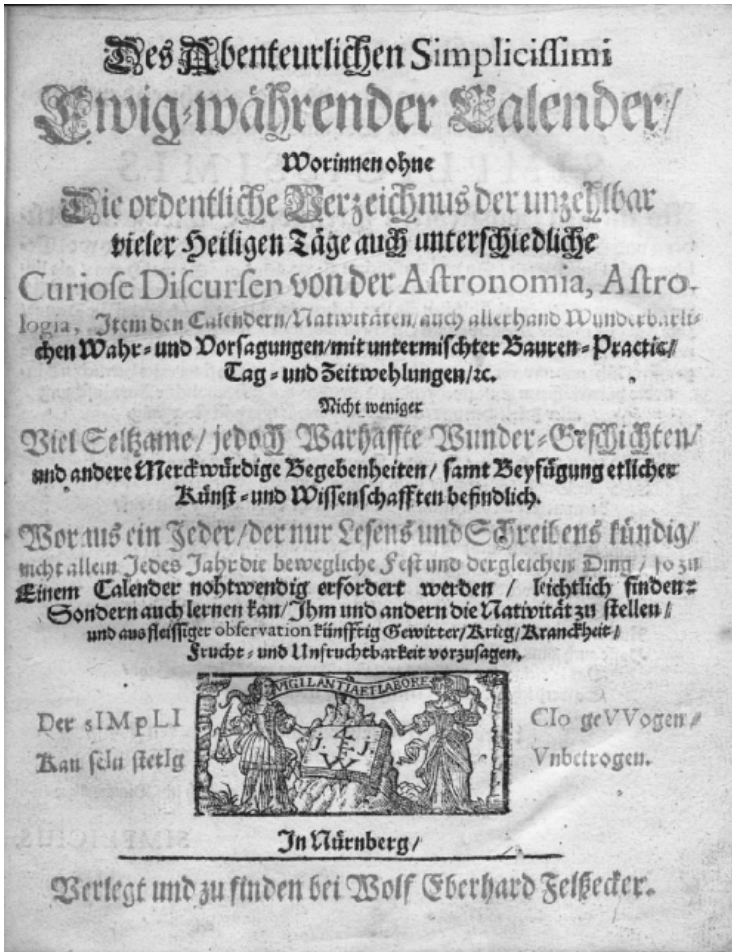 Des Abenteurlichen Simplicissimi
Ewig-währender Calender/
Worinnen ohne
Die ordentliche Verzeichnus der unzehlbar
vieler Heiligen Täge auch unterschiedliche
Curiose Discursen von der Astronomia, Astro-
logia, Item den Calendern/Nativitäten/auch allerhand Wunderbarli-
chen Wahr- und Vorsagungen/mit untermischter Bauren-Practic/
Tag- und Zeitwehlungen/ꝛc.
Nicht weniger
Viel Seltzame/ jedoch Warhaffte Wunder-Geschichten/
und andere Merckwürdige Begebenheiten/ samt Beyfügung etlicher
Künst- und Wissenschafften befindlich.
Woraus ein Jeder/der nur Lesens und Schreibens kündig/
nicht allein Jedes Jahr die bewegliche Fest und dergleichen Ding / so zu
Einem Calender nohtwendig erfordert werden / leichtlich finden:
Sondern auch lernen kan/ Ihm und andern die Nativität zu stellen/
und aus fleissiger observation künfftig Gewitter/Krieg/Kranckheit/
Frucht- und Unfruchtbarkeit vorzusagen.
VIGILANTIA ET LABORE
J. 4 F. J.
W
Der sIMpLI CIo geVVogen/
Kan seIn stetIg Vnbetrogen.
In Nürnberg/
Verlegt und zu finden bei Wolf Eberhard Felßecker.